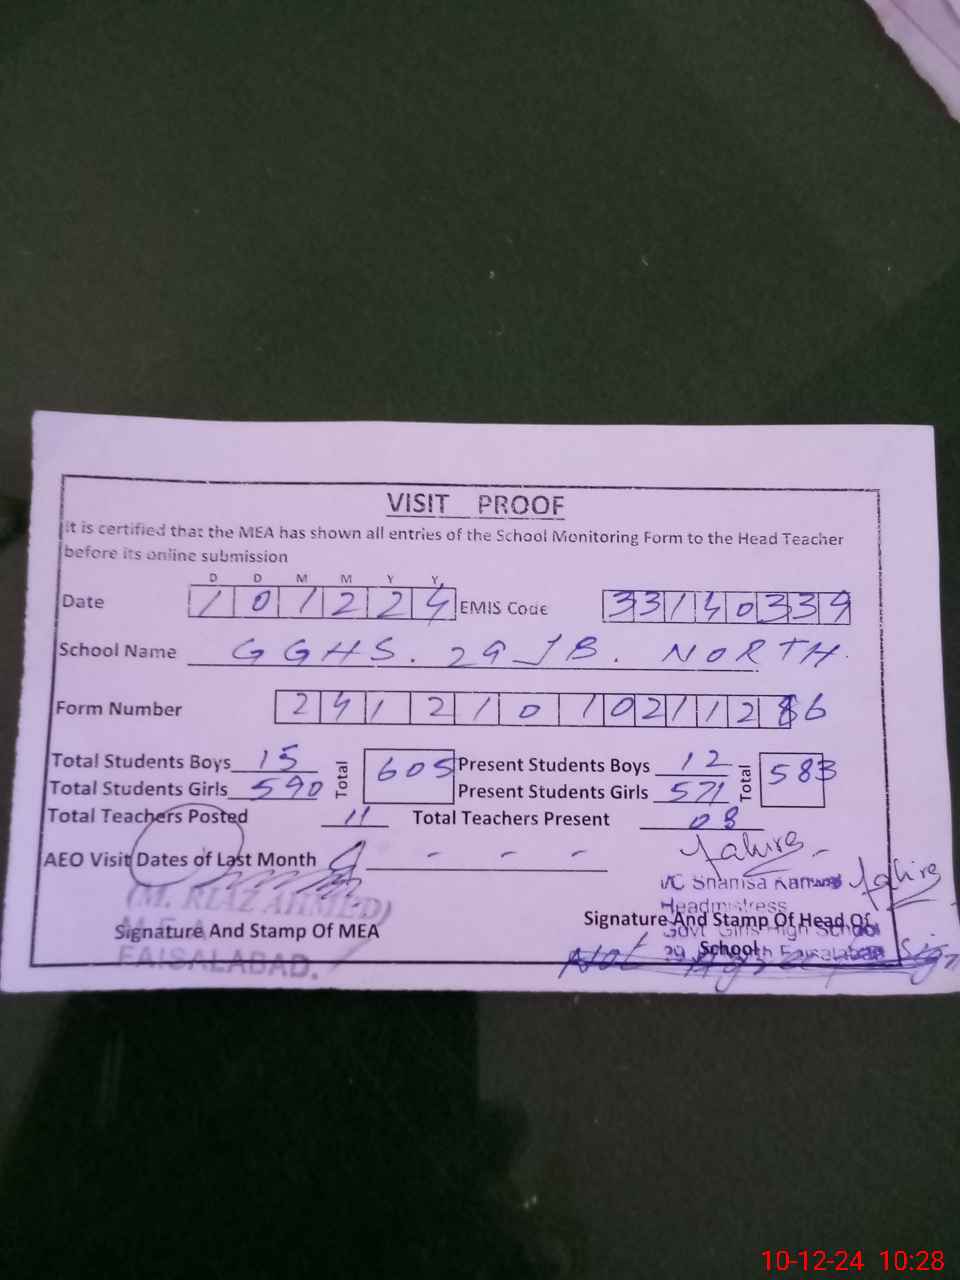 VISIT PROOF
It is certified that the MEA has shown all entries of the School Monitoring Form to the Head Teacher
before its online submission
D D M M Y Y
Date 101224 EMIS Code 33140339
School Name GGHS. 29 JB. NORTH.
Form Number
Total Students Boys 15 Total 605 Present Students Boys 12 Total 583
Total Students Girls 590 Present Students Girls 571
Total Teachers Posted 11 Total Teachers Present 08
AEO Visit Dates of Last Month - - -
(M. RIAZ AHMED)
I/C Shamsa Kanwal
Headmistress
Signature And Stamp Of MEA
Signature And Stamp Of Head Of
School
Govt Girls High School
M.E.A
FAISALABAD.
Faisalabad
Not
10-12-24 10:28